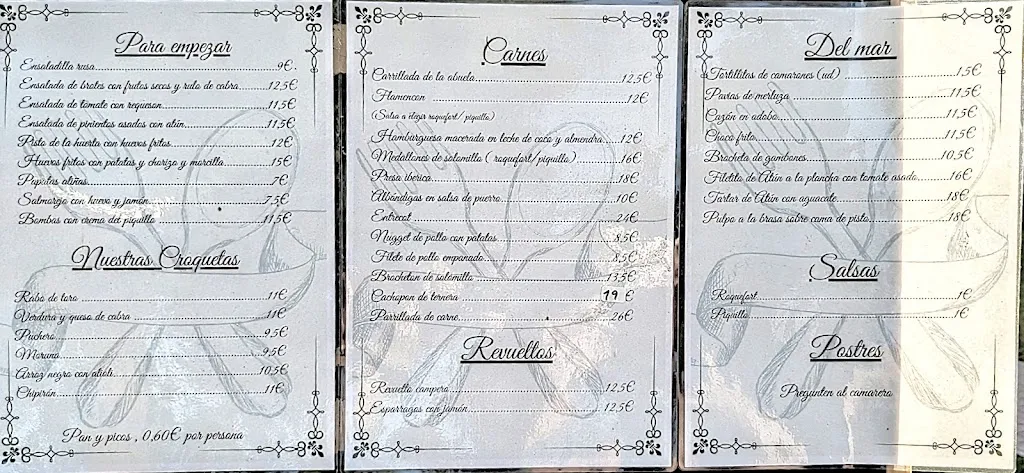 Para empezar
Ensaladilla rusa 9€.
Ensalada de brotes con frutos secos y rulo de cabra 12,5€
Ensalada de tomate con requeson 11,5€
Ensalada de pimientos asados con atún 11,5€
Pisto de la huerta con huevos fritos 12€
Huevos fritos con patatas y chorizo y morcilla 15€
Papatas aliñas 7€
Salmorejo con huevo y jamón 7,5€
Bombas con crema del piquillo 11,5€
Nuestras Croquetas
Rabo de toro 11€
Verdura y queso de cabra 11€
Puchero 9,5€
Moruno 9,5€
Arroz negro con alioli 10,5€
Chipirón 11€
Pan y picos , 0,60€ por persona
Carnes
Carrillada de la abuela 12,5€
Flamencon 12€
(Salsa a elegir roquefort/ piquillo)
Hamburguesa macerada en leche de coco y almendra 12€
Medallones de solomillo ( roquefort/piquillo) 16€
Presa iberica 18€
Albóndigas en salsa de puerro 10€
Entrecot 24€
Nugget de pollo con patatas 8,5€
Filete de pollo empanado 8,5€
Brocheton de solomillo 13,5€
Cachopon de ternera 19 €
Parrillada de carne 26€
Revueltos
Revuelto campero 12,5€
Esparragos con jamón 12,5€
Del mar
Tortillitas de camarones (ud) 1,5€
Pavias de merluza 11,5€
Cazón en adobo 11,5€
Choco frito 11,5€
Brocheta de gambones 10,5€
Filetito de Atún a la plancha con tomate asado 16€
Tartar de Atún con aguacate 18€
Pulpo a la brasa sobre cama de pisto 18€
Salsas
Roquefort 1€
Piquillo 1€
Postres
Pregunten al camarero